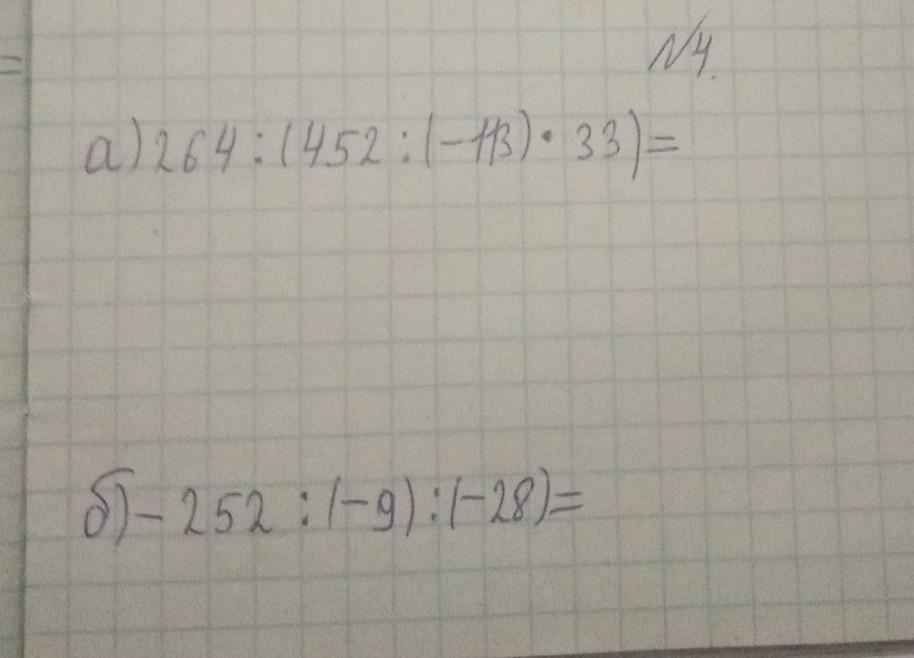 №4.
а) 264 : (452 : (-113) · 33) =
б) - 252 : (-9) : (-28) =